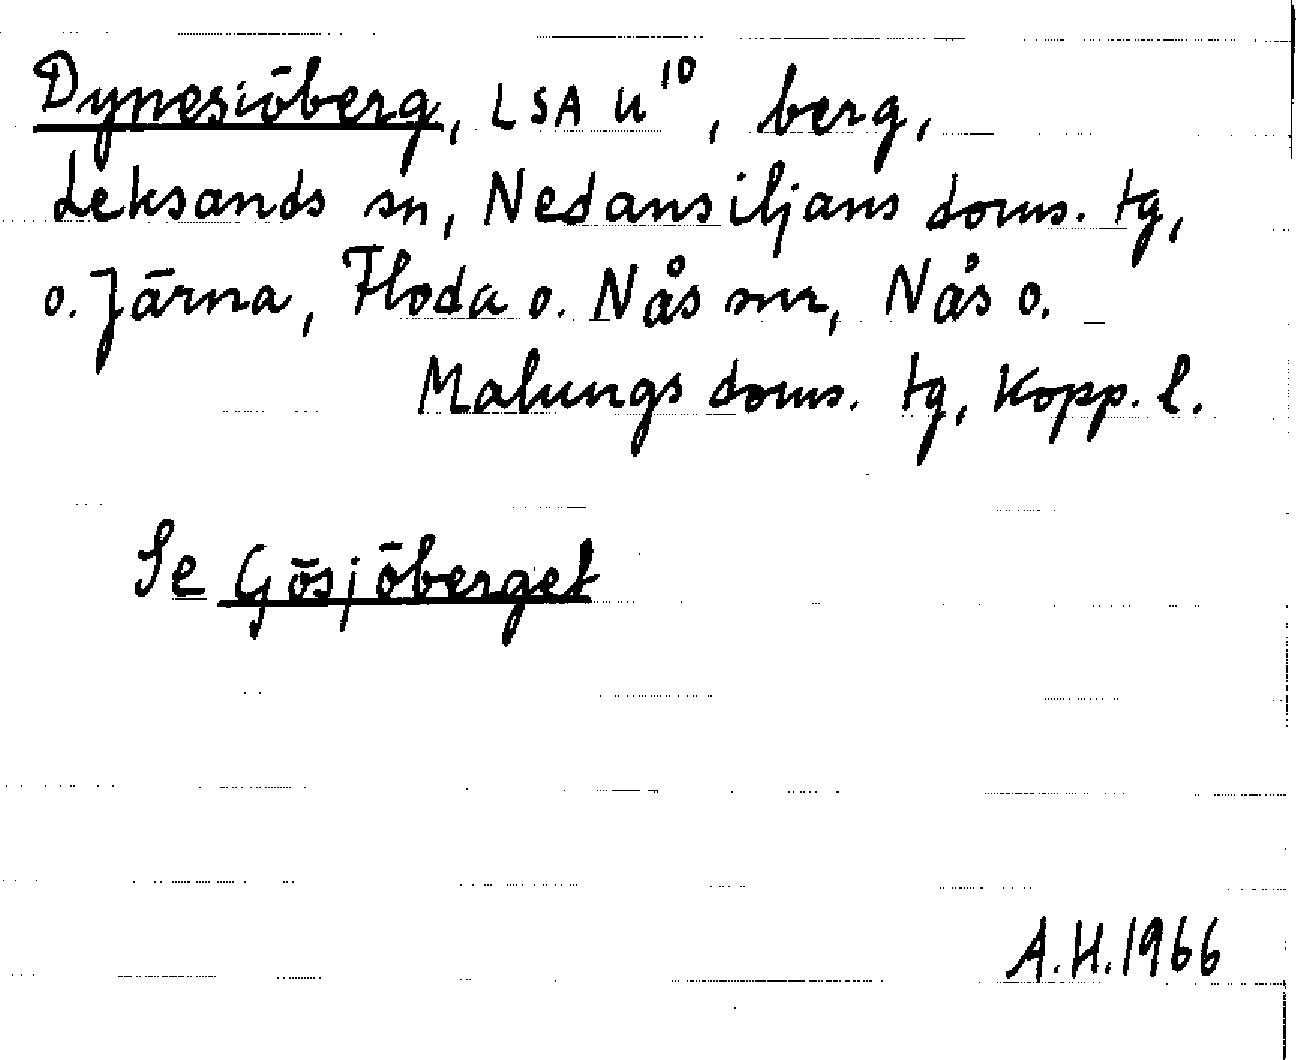 Dynesiöberg, LSA U¹⁰, berg,
Leksands sn, Nedansiljans doms. tg,
o. Järna, Floda o. Nås snr, Nås o.
Malungs doms. tg, Kopp. l.
Se Gösjöberget
A.H.1966